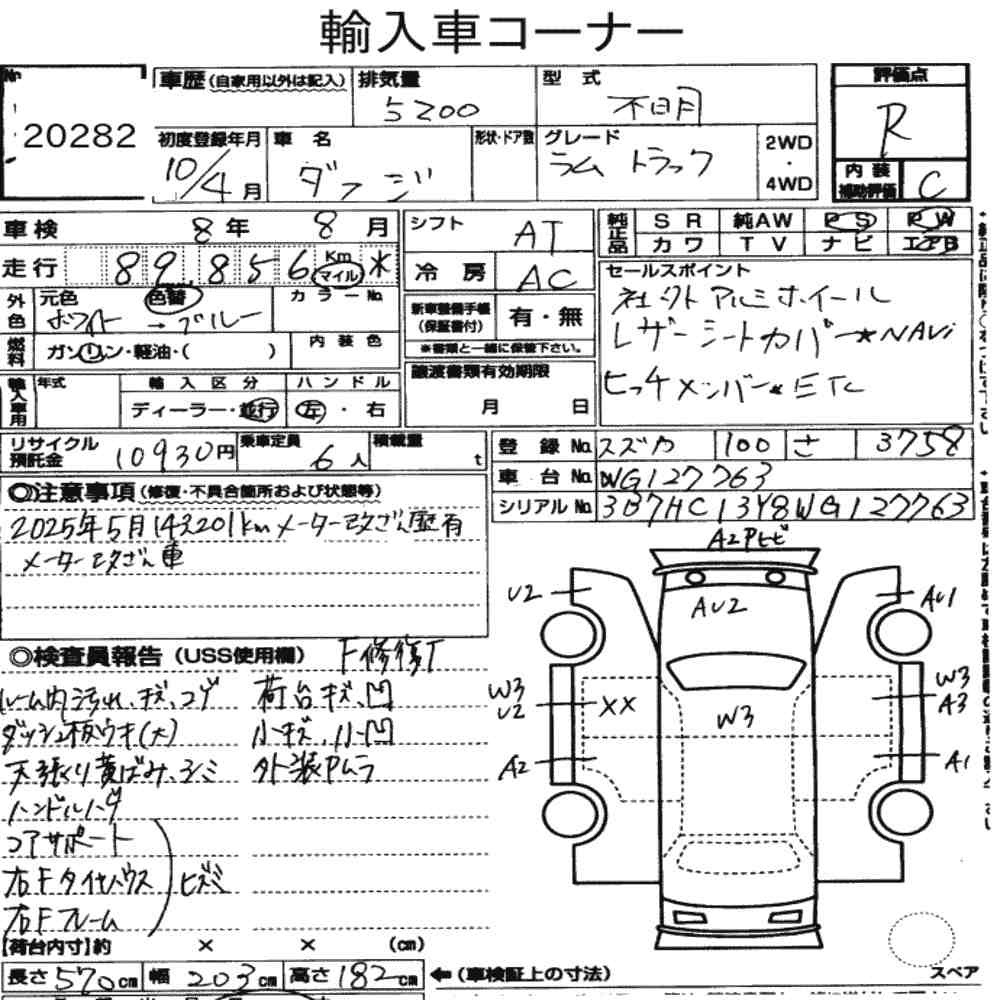 輸入車コーナー
No 20282
車歴 (自家用以外は記入) 排気量 5200 型式 不明 評価点 R
初度登録年月 10/4月 車名 ダッジ 形状・ドア数 グレード ラム トラック 2WD・4WD 内装補助評価 C
車検 8年 8月 シフト AT 純正品 SR 純AW PS PW
カワ TV ナビ エアB
走行 89,856 Km マイル * 冷房 AC セールスポイント
外色 元色 ホワイト → 色替 ブルー カラーNo. 新車整備手帳(保証書付) 有・無 社外アルミホイール
※書類と一緒に保管下さい。 レザーシートカバー★NAVi
燃料 ガソリン・軽油・( ) 内装色 ヒッチメンバー★ETC
輸入車用 年式 輸入区分 ハンドル 譲渡書類有効期限
ディーラー・並行 左・右 月 日
リサイクル預託金 10930円 乗車定員 6人 積載量 t 登録No. スズカ 100 さ 3758
車台No. WG127763
◎注意事項 (修復・不具合箇所および状態等) シリアルNo. 3B7HC13Y8WG127763
2025年5月143201kmメーター改ざん歴有
メーター改ざん車
◎検査員報告 (USS使用欄) F修復T
ルーム内汚れ、キズ、コゲ 荷台キズ、凹
ダッシュ板ウキ(大) 小キズ、小凹
天張り黄ばみ、シミ 外装Pムラ
ハンドルハゲ
コアサポート
右Fタイヤハウス ヒズミ
右Fフレーム
A2Pヒビ
U2 AU2 AU1
W3 U2 XX W3 W3 A3
A2 A1
【荷台内寸】約 × × (cm)
長さ 570cm 幅 203cm 高さ 182cm ←(車検証上の寸法) スペア